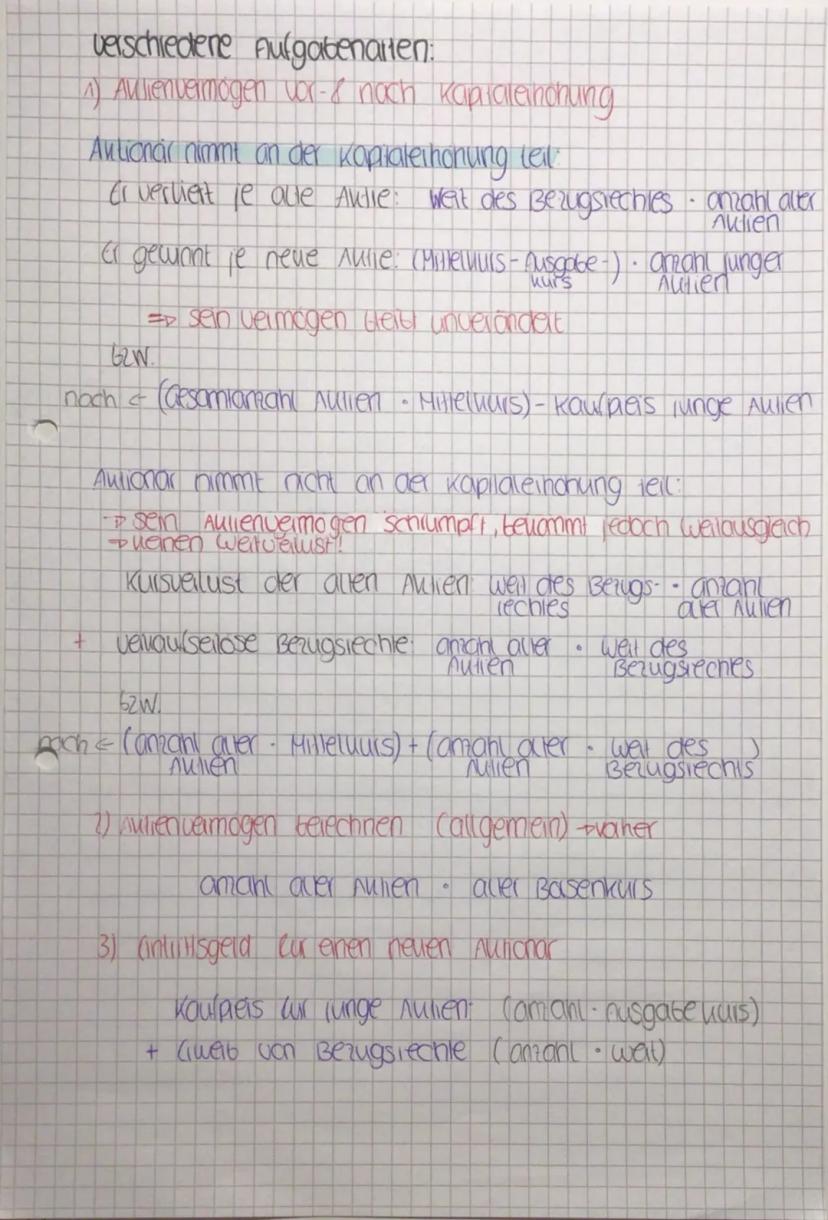 verschiedene Aufgabenarten:
1) Aktienvermögen vor- & nach Kapitalerhöhung
Aktionär nimmt an der Kapitalerhöhung teil:
Er verliert je alte Aktie: Wert des Bezugsrechtes · anzahl alter Aktien
Er gewinnt je neue Aktie: (Mittelkurs - Ausgabe-kurs) · anzahl junger Aktien
=> sein Vermögen bleibt unverändert
bzw.
nach ← (Gesamtanzahl Aktien · Mittelkurs) - Kaufpreis junge Aktien
Aktionär nimmt nicht an der Kapitalerhöhung teil:
→ sein Aktienvermögen schrumpft, bekommt jedoch Wertausgleich
→ keinen Wertverlust!
Kursverlust der alten Aktien: Wert des Bezugs-rechtes · anzahl alter Aktien
+ Verkaufserlöse Bezugsrechte: anzahl alter Aktien · Wert des Bezugsrechtes
bzw.
nach ← (anzahl alter Aktien · Mittelkurs) + (anzahl alter Aktien · Wert des Bezugsrechts)
2) Aktienvermögen berechnen (allgemein) → vorher
anzahl alter Aktien · alter Börsenkurs
3) Eintrittsgeld für einen neuen Aktionär
Kaufpreis für junge Aktien: (anzahl · Ausgabekurs)
+ Erwerb von Bezugsrechte (anzahl · Wert)